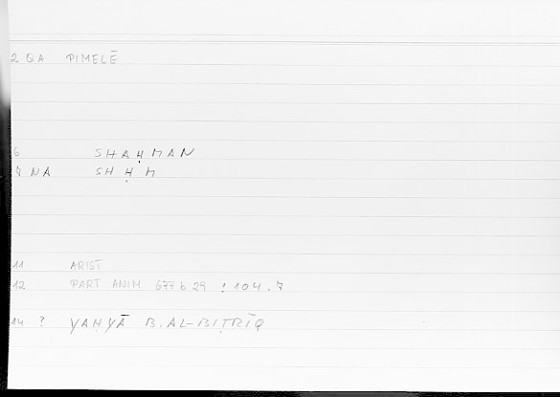 2 QA PIMELĒ
6 SHAḤMAN
7 NA SHḤM
11 ARIST
12 PART ANIM 677 b 29 : 104.7
14 ? YAḤYĀ B. AL-BIṬRĪQ